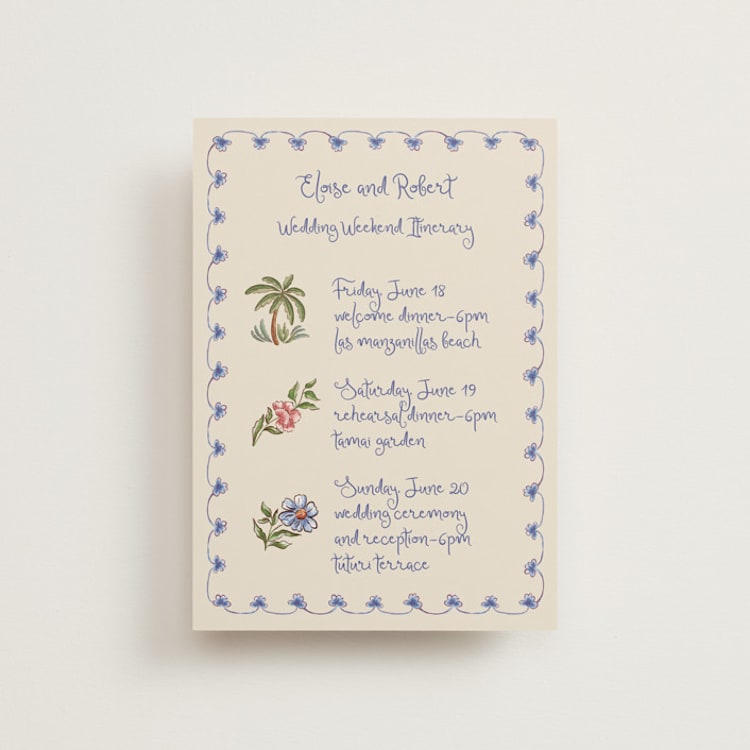 Eloise and Robert
Wedding Weekend Itinerary
Friday, June 18
welcome dinner-6pm
las manzanillas beach
Saturday, June 19
rehearsal dinner-6pm
tamai garden
Sunday, June 20
wedding ceremony
and reception-6pm
tuturi terrace